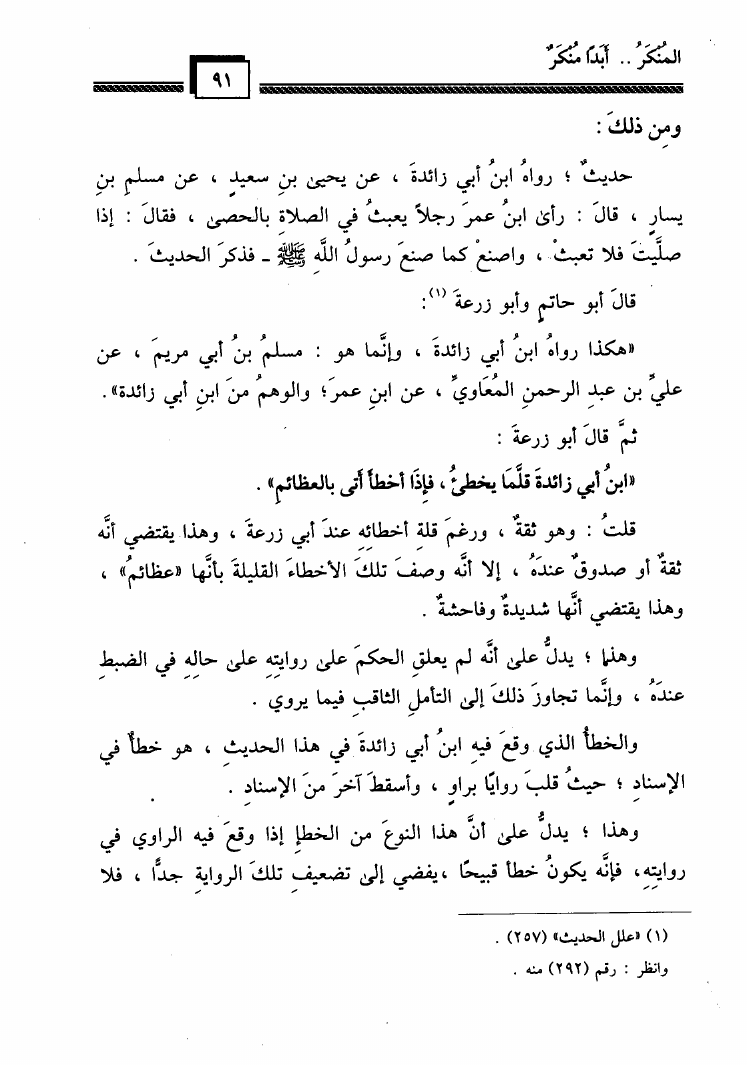 المُنْكَرُ .. أَبَدًا مُنْكَرٌ
٩١
ومِن ذلكَ :
حديثٌ ؛ رواهُ ابنُ أبي زائدةَ ، عن يحيىٰ بنِ سعيدٍ ، عن مسلمِ بنِ
يسارٍ ، قالَ : رأىٰ ابنُ عمرَ رجلاً يعبثُ في الصلاةِ بالحصىٰ ، فقالَ : إذا
صلَّيتَ فلا تعبثْ ، واصنعْ كما صنعَ رسولُ اللَّهِ ﷺ ـ فذكرَ الحديثَ .
قالَ أبو حاتمٍ وأبو زرعةَ (١):
«هكذا رواهُ ابنُ أبي زائدةَ ، وإنَّما هو : مسلمُ بنُ أبي مريمَ ، عن
عليِّ بن عبدِ الرحمنِ المُعَاويِّ ، عن ابنِ عمرَ؛ والوهمُ منَ ابنِ أبي زائدة».
ثمَّ قالَ أبو زرعةَ :
«ابنُ أبي زائدةَ قلَّمَا يخطئُ، فإذَا أخطأَ أتى بالعظائمِ» .
قلتُ : وهو ثقةٌ ، ورغمَ قلةِ أخطائهِ عندَ أبي زرعةَ ، وهذا يقتضي أنَّه
ثقةٌ أو صدوقٌ عندَهُ ، إلا أنَّه وصفَ تلكَ الأخطاءَ القليلةَ بأنَّها «عظائمُ» ،
وهذا يقتضي أنَّها شديدةٌ وفاحشةٌ .
وهذا ؛ يدلُّ علىٰ أنَّه لم يعلقِ الحكمَ علىٰ روايتِهِ علىٰ حالِهِ في الضبطِ
عندَهُ ، وإنَّما تجاوزَ ذلكَ إلىٰ التأملِ الثاقبِ فيما يروي .
والخطأُ الذي وقعَ فيهِ ابنُ أبي زائدةَ في هذا الحديثِ ، هو خطأٌ في
الإسنادِ ؛ حيثُ قلبَ روايًا براوٍ ، وأسقطَ آخرَ منَ الإسنادِ .
وهذا ؛ يدلُّ علىٰ أنَّ هذا النوعَ من الخطإِ إذا وقعَ فيه الراوي في
روايتِهِ، فإنَّه يكونُ خطأً قبيحًا ،يفضي إلىٰ تضعيفِ تلكَ الروايةِ جدًّا ، فلا
(١) «علل الحديث» (٢٥٧) .
وانظر : رقم (٢٩٢) منه .